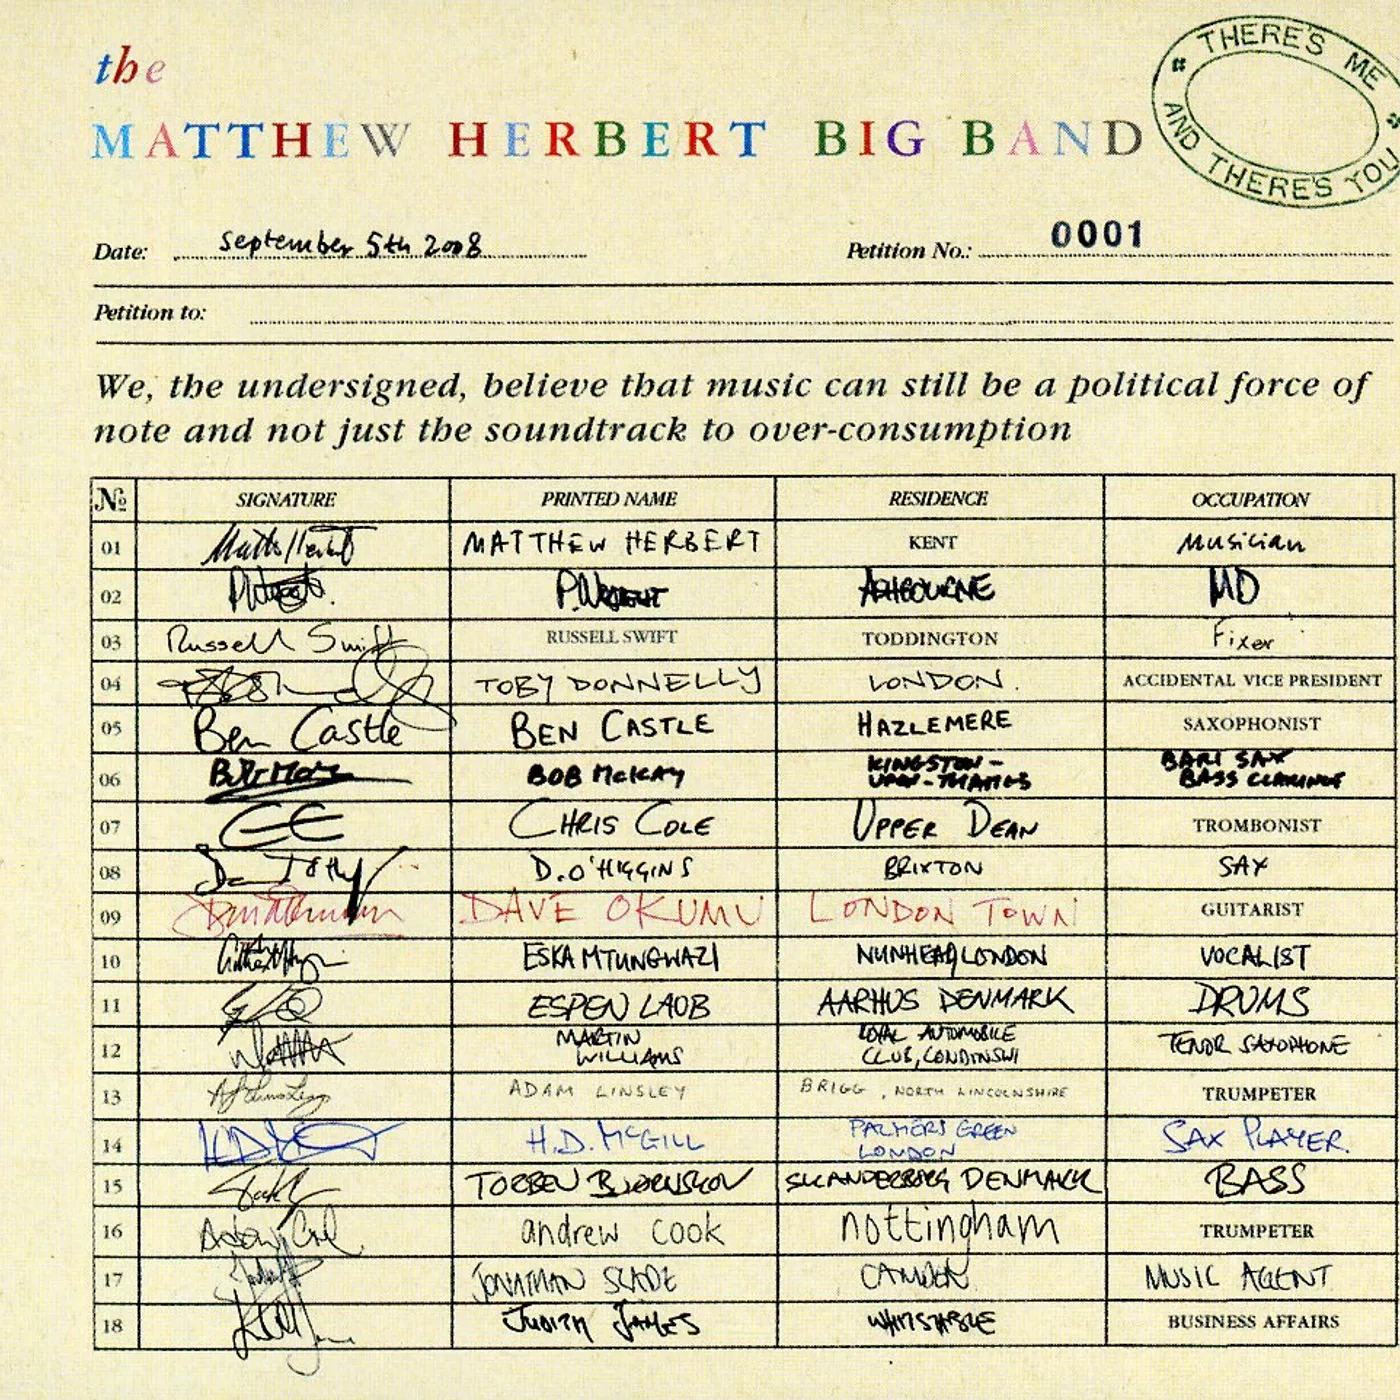 the
MATTHEW HERBERT BIG BAND
THERE'S ME AND THERE'S YOU
Date: September 5th 2008 Petition No.: 0001
Petition to:
We, the undersigned, believe that music can still be a political force of
note and not just the soundtrack to over-consumption
No SIGNATURE PRINTED NAME RESIDENCE OCCUPATION
01 MATTHEW HERBERT KENT Musician
02 P.WRIGHT ASHBOURNE MD
03 Russell Swift RUSSELL SWIFT TODDINGTON Fixer
04 TOBY DONNELLY LONDON. ACCIDENTAL VICE PRESIDENT
05 Ben Castle BEN CASTLE HAZLEMERE SAXOPHONIST
06 BOB McKAY KINGSTON- BARI SAX
UPON-THAMES BASS CLARINET
07 CHRIS COLE UPPER DEAN TROMBONIST
08 D.O'HIGGINS BRIXTON SAX
09 DAVE OKUMU LONDON TOWN GUITARIST
10 ESKA MTUNGWAZI NUNHEAD, LONDON VOCALIST
11 ESPEN LAUB AARHUS DENMARK DRUMS
12 MARTIN ROYAL AUTOMOBILE TENOR SAXOPHONE
WILLIAMS CLUB, LONDINSW1
13 ADAM LINSLEY BRIGG, NORTH LINCOLNSHIRE TRUMPETER
14 H.D. McGILL PALMERS GREEN SAX PLAYER.
LONDON
15 TORBEN BJØRNSKOV SKANDERBORG DENMARK BASS
16 andrew cook nottingham TRUMPETER
17 JONATHAN SLADE CAMDEN MUSIC AGENT
18 JUDITH JAMES WHITSTABLE BUSINESS AFFAIRS